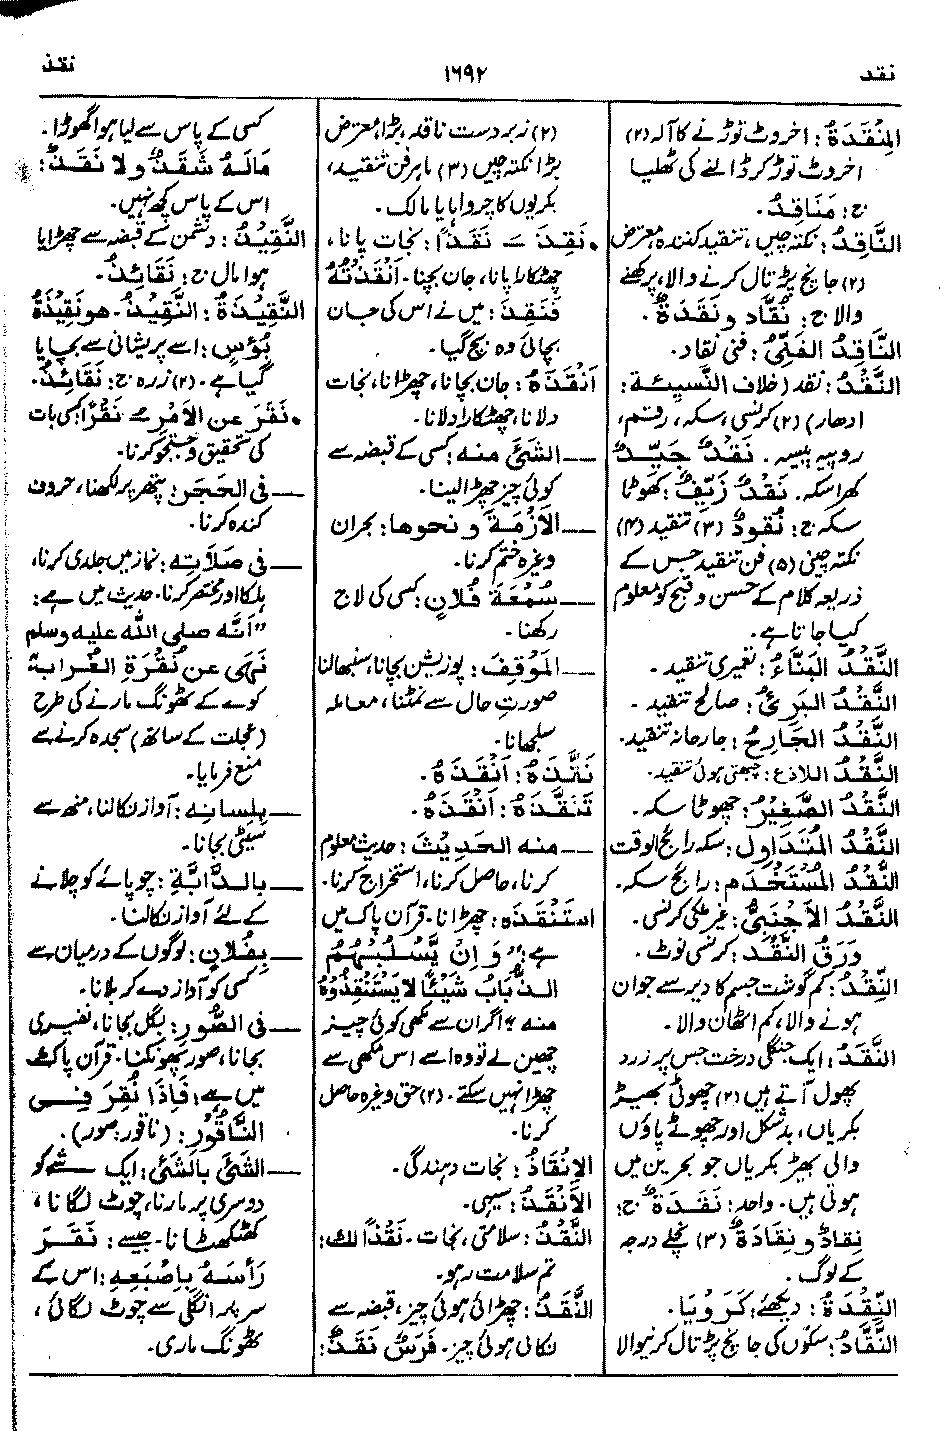 نقد
۱۶۹۲
نقذ
المِنْقَدَةُ: اخروٹ توڑنے کا آلہ (۲)
اخروٹ توڑ کر ڈالنے کی ٹھلیا
ج: مَنَاقِدُ.
النَّاقِدُ: نکتہ چیں، تنقید کنندہ، معترض
(۲) جانچ پڑتال کرنے والا، پرکھنے
والا ج: نُقَّاد و نَقَدَةٌ.
النَّاقِدُ الفَنِّيُّ: فنی نقاد.
النَّقْدُ: نقد (خلاف النَّسِيئَة:
ادھار) (۲) کرنسی، سکہ، رقم،
روپیہ پیسہ. نَقْدٌ جَيِّدٌ
کھرا سکہ. نَقْدٌ زَيِّفٌ: کھوٹا
سکہ ج: نُقُودٌ (۳) تنقید (۴)
نکتہ چینی (۵) فن تنقید جس کے
ذریعہ کلام کے حسن و قبح کو معلوم
کیا جاتا ہے.
النَّقْدُ البَنَّاءُ: تعمیری تنقید.
النَّقْدُ البَرِيُّ: صالح تنقید.
النَّقْدُ الجَارِحُ: جارحانہ تنقید.
النَّقْدُ اللاذِعُ: چبھتی ہوئی تنقید.
النَّقْدُ الصَّغِيْرُ: چھوٹا سکہ.
النَّقْدُ المُتَدَاوِل: سکہ رائج الوقت
النَّقْدُ المُسْتَخْدَم: رائج سکہ.
النَّقْدُ الاَجْنَبِيُّ: غیر ملکی کرنسی.
وَرَقُ النَّقْد: کرنسی نوٹ.
النِّقْدُ: کم گوشت جسم کا دیر سے جوان
ہونے والا، کم اٹھان والا.
النَّقَدُ: ایک جنگلی درخت جس پر زرد
پھول آتے ہیں (۲) چھوٹی بھیڑ
بکریاں، بدشکل اور چھوٹے پاؤں
والی بھیڑ بکریاں جو بحرین میں
ہوتی ہیں. واحد: نَقَدَةٌ ج:
نِقادٌ و نِقَادَةٌ (۳) نچلے درجہ
کے لوگ.
النِّقْدَةُ: دیکھئے: کَرَوْیَا.
النَّقَّادُ: سکوں کی جانچ پڑتال کرنیوالا
(۲) زبردست ناقد، بڑا معترض
بڑا نکتہ چیں (۳) ماہر فن تنقید،
بکریوں کا چرواہا یا مالک.
• نَقِذَ ــَ نَقَذًا: نجات پانا،
چھٹکارا پانا، جان بچنا. اَنْقَذْتُهُ
فَنَقِذَ: میں نے اس کی جان
بچائی وہ بچ گیا.
اَنْقَذَهُ: جان بچانا، چھڑانا، نجات
دلانا، چھٹکارا دلانا.
ــــ الشَّئَ منه: کسی کے قبضہ سے
کوئی چیز چھڑا لینا.
ــــ الاَزْمَةَ و نحوها: بحران
وغیرہ ختم کرنا.
ــــ سُمْعَةَ فُلَانٍ: کسی کی لاج
رکھنا.
ــــ المَوْقِفَ: پوزیشن بچانا، سنبھالنا
صورتِ حال سے نمٹنا، معاملہ
سلجھانا.
نَقَّذَهُ: اَنْقَذَهُ.
تَنَقَّذَهُ: اَنْقَذَهُ.
ــــ منه الحَدِيْثَ: حدیث معلوم
کرنا، حاصل کرنا، استخراج کرنا.
اسْتَنْقَذَه: چھڑانا. قرآن پاک میں
ہے: "وَاِنْ يَّسْلُبْهُمُ
الذُّبَابُ شَيْئًا لَّا يَسْتَنْقِذُوْهُ
منه" اگر ان سے مکھی کوئی چیز
چھین لے تو وہ اسے اس مکھی سے
چھڑا نہیں سکتے. (۲) حق وغیرہ حاصل
کرنا.
الاِنْقَاذُ: نجات دہندگی.
الاَنْقَذُ: سیہی.
النَّقْذُ: سلامتی، نجات. نَقْذًا لَكَ:
تم سلامت رہو.
النَّقَذُ: چھڑائی ہوئی چیز، قبضہ سے
نکالی ہوئی چیز. فَرَسٌ نَقَذٌ:
کسی کے پاس سے لیا ہوا گھوڑا.
مَالَهُ شَقَذٌ ولا نَقَذٌ:
اس کے پاس کچھ نہیں.
النَّقِيْذُ: دشمن کے قبضہ سے چھڑایا
ہوا مال ج: نَقَائِذُ.
النَّقِيْذَةُ: النَّقِيْذُ. هو نَقِيْذَةُ
بُؤْسٍ: اسے پریشانی سے بچایا
گیا ہے. (۲) زرہ ج: نَقَائِذُ.
• نَقَرَ عن الاَمْرِ ــُ نَقْرًا: کسی بات
کی تحقیق و جستجو کرنا.
ــــ فی الحَجَرِ: پتھر پر لکھنا، حروف
کندہ کرنا.
ــــ فی صَلَاتِه: نماز میں جلدی کرنا،
ہلکا اور مختصر کرنا. حدیث میں ہے:
"اَنَّه صلی اللّٰه علیه وسلم
نَهَى عن نَقْرَةِ الغُرَابِ"
کوے کے ٹھونگ مارنے کی طرح
(عجلت کے ساتھ) سجدہ کرنے سے
منع فرمایا.
ــــ بِلِسَانِه: آواز نکالنا، منھ سے
سیٹی بجانا.
ــــ بالدَّابَّةِ: چوپائے کو چلانے
کے لئے آواز نکالنا.
ــــ بِفُلَانٍ: لوگوں کے درمیان سے
کسی کو آواز دے کر بلانا.
ــــ فی الصُّورِ: بگل بجانا، نفیری
بجانا، صور پھونکنا. قرآن پاک
میں ہے: فَاِذَا نُقِرَ فِی
النَّاقُورِ: (ناقور: صور).
ــــ الشَّئَ بالشَّئِ: ایک شے کو
دوسری پر مارنا، چوٹ لگانا،
کھٹکھٹانا. جیسے: نَقَرَ
رَأسَهُ بِاِصْبَعِهِ: اس کے
سر پر انگلی سے چوٹ لگائی،
ٹھونگ ماری.